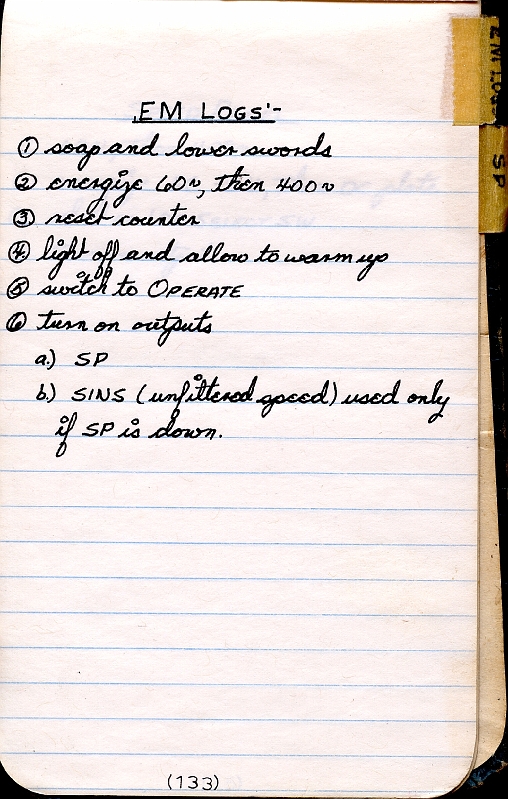 EM LOGS'-
① soap and lower swords
② energize 60~, then 400~
③ reset counter
④ light off and allow to warm up
⑤ switch to OPERATE
⑥ turn on outputs
a.) SP
b.) SINS (unfiltered speed) used only
if SP is down.
(133)
SP